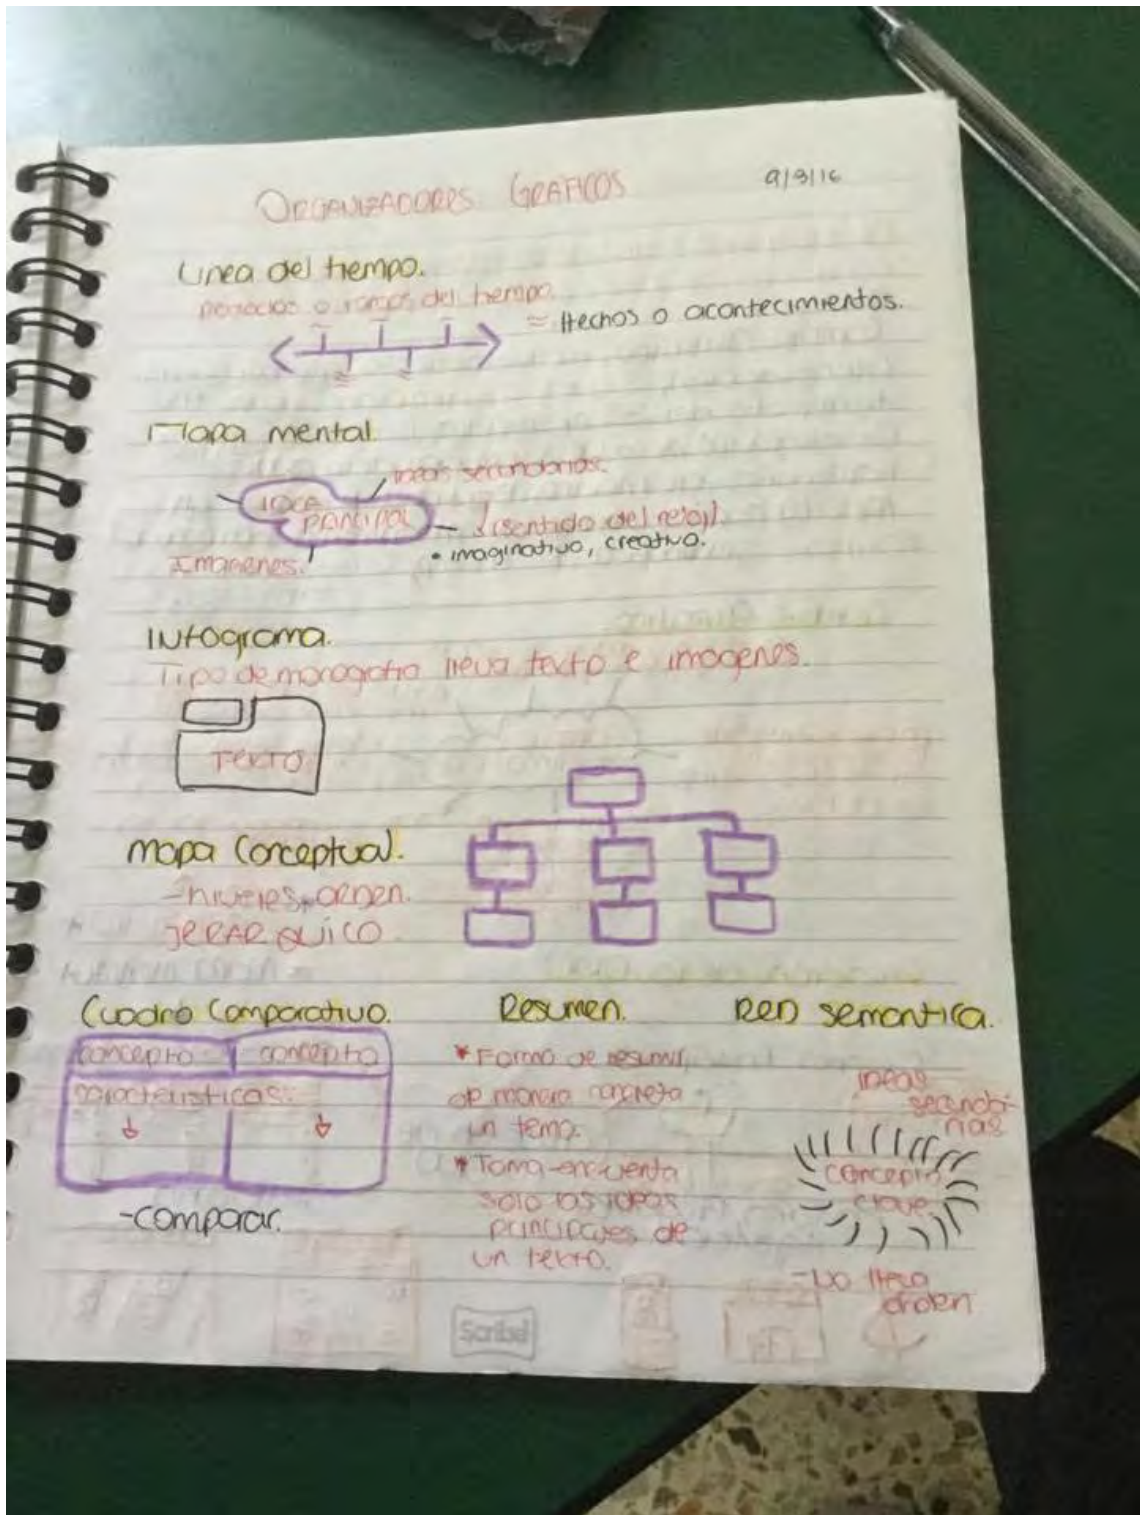 ORGANIZADORES GRAFICOS
9/3/16
Linea del tiempo.
periodos o rangos del tiempo.
= Hechos o acontecimientos.
Mapa mental.
ideas secundarias.
IDEA
PRINCIPAL
(sentido del reloj).
• imaginativo, creativo.
Imagenes.
INfograma.
Tipo de lleva texto e imagenes.
TEXTO
mapa conceptual.
-niveles, orden.
JERARQUICO
Cuadro Comparativo.
concepto concepto
caracteristicas:
-comparar.
Resumen.
* Forma de resumir
de manera concreta
un tema.
* Toma encuenta
solo las ideas
principales de
un texto.
RED Semantica.
ideas
secunda-
rias
concepto
clave
-No lleva
orden
Scribe